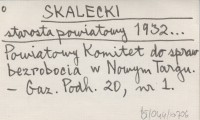 SKALECKI
starosta powiatowy 1932...
Powiatowy Komitet do spraw
bezrobocia w Nowym Targu.
– Gaz. Podh. 20, nr 1.